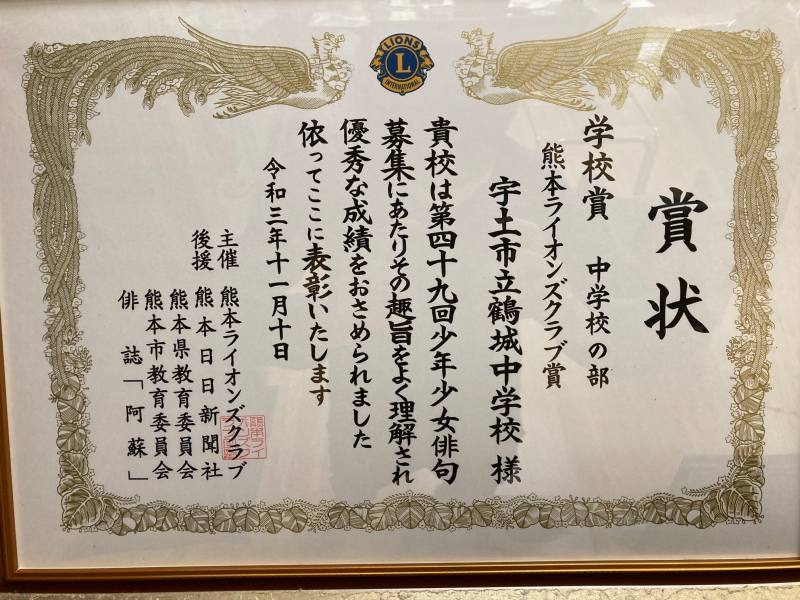 LIONS
L
INTERNATIONAL
賞状
学校賞 中学校の部
熊本ライオンズクラブ賞
宇土市立鶴城中学校 様
貴校は第四十九回少年少女俳句
募集にあたりその趣旨をよく理解され
優秀な成績をおさめられました
依ってここに表彰いたします
令和三年十一月十日
主催 熊本ライオンズクラブ
後援 熊本日日新聞社
熊本県教育委員会
熊本市教育委員会
俳誌「阿蘇」